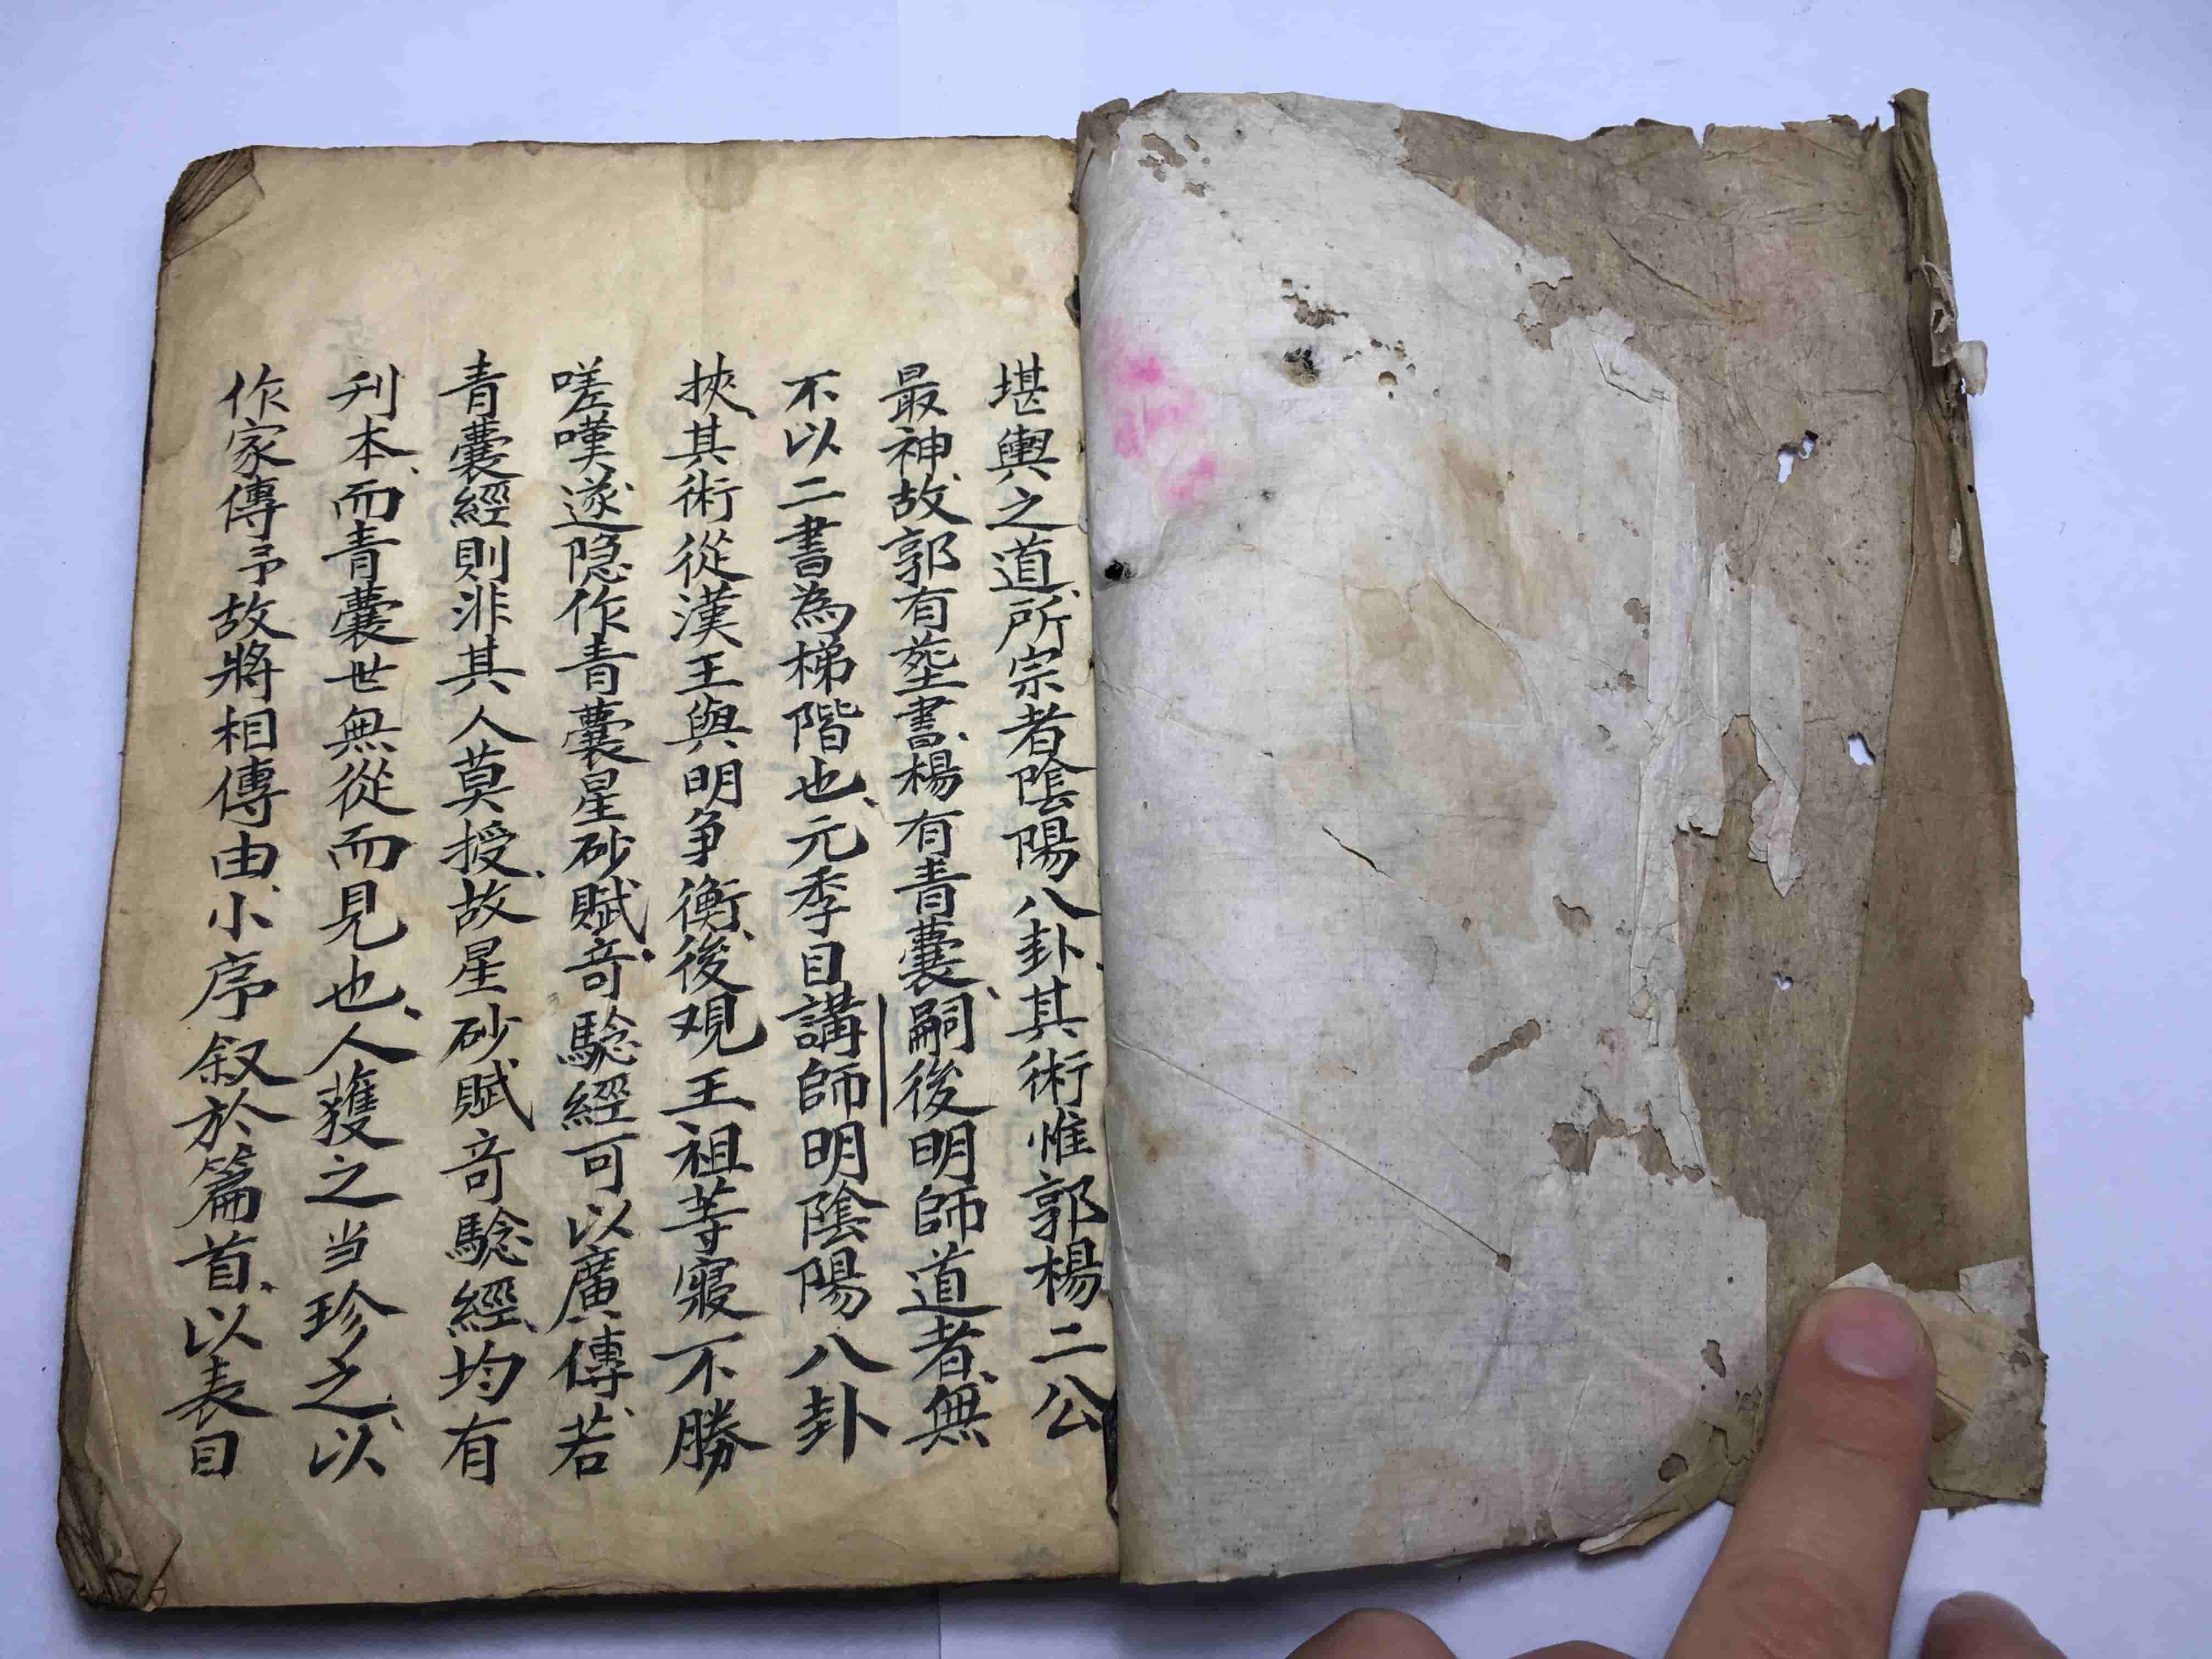 堪輿之道、所宗者陰陽八卦、其術惟郭楊二公
最神、故郭有塟書、楊有青囊、嗣後明師道者、無
不以二書為梯階也、元季目講師明陰陽八卦
挾、其術從漢王與明争衡、後观王祖等寢不勝
嗟嘆遂隐作青囊星砂賦、竒驗經可以廣傳、若
青囊經則非其人莫授、故星砂賦竒驗經、均有
刊本、而青囊世無從而見也、人獲之当珍之、以
作家傳予故將相傳由、小序叙於篇首、以表目